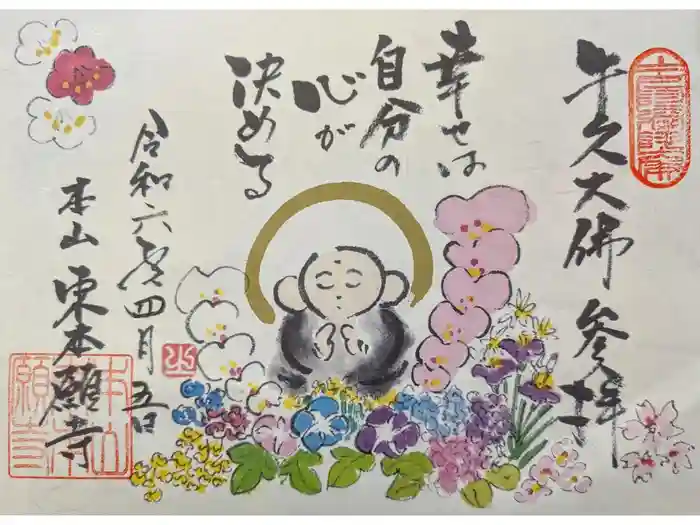 牛久大佛参拝
幸せは
自分の
心が
決める
令和六年四月吉日
本山東本願寺